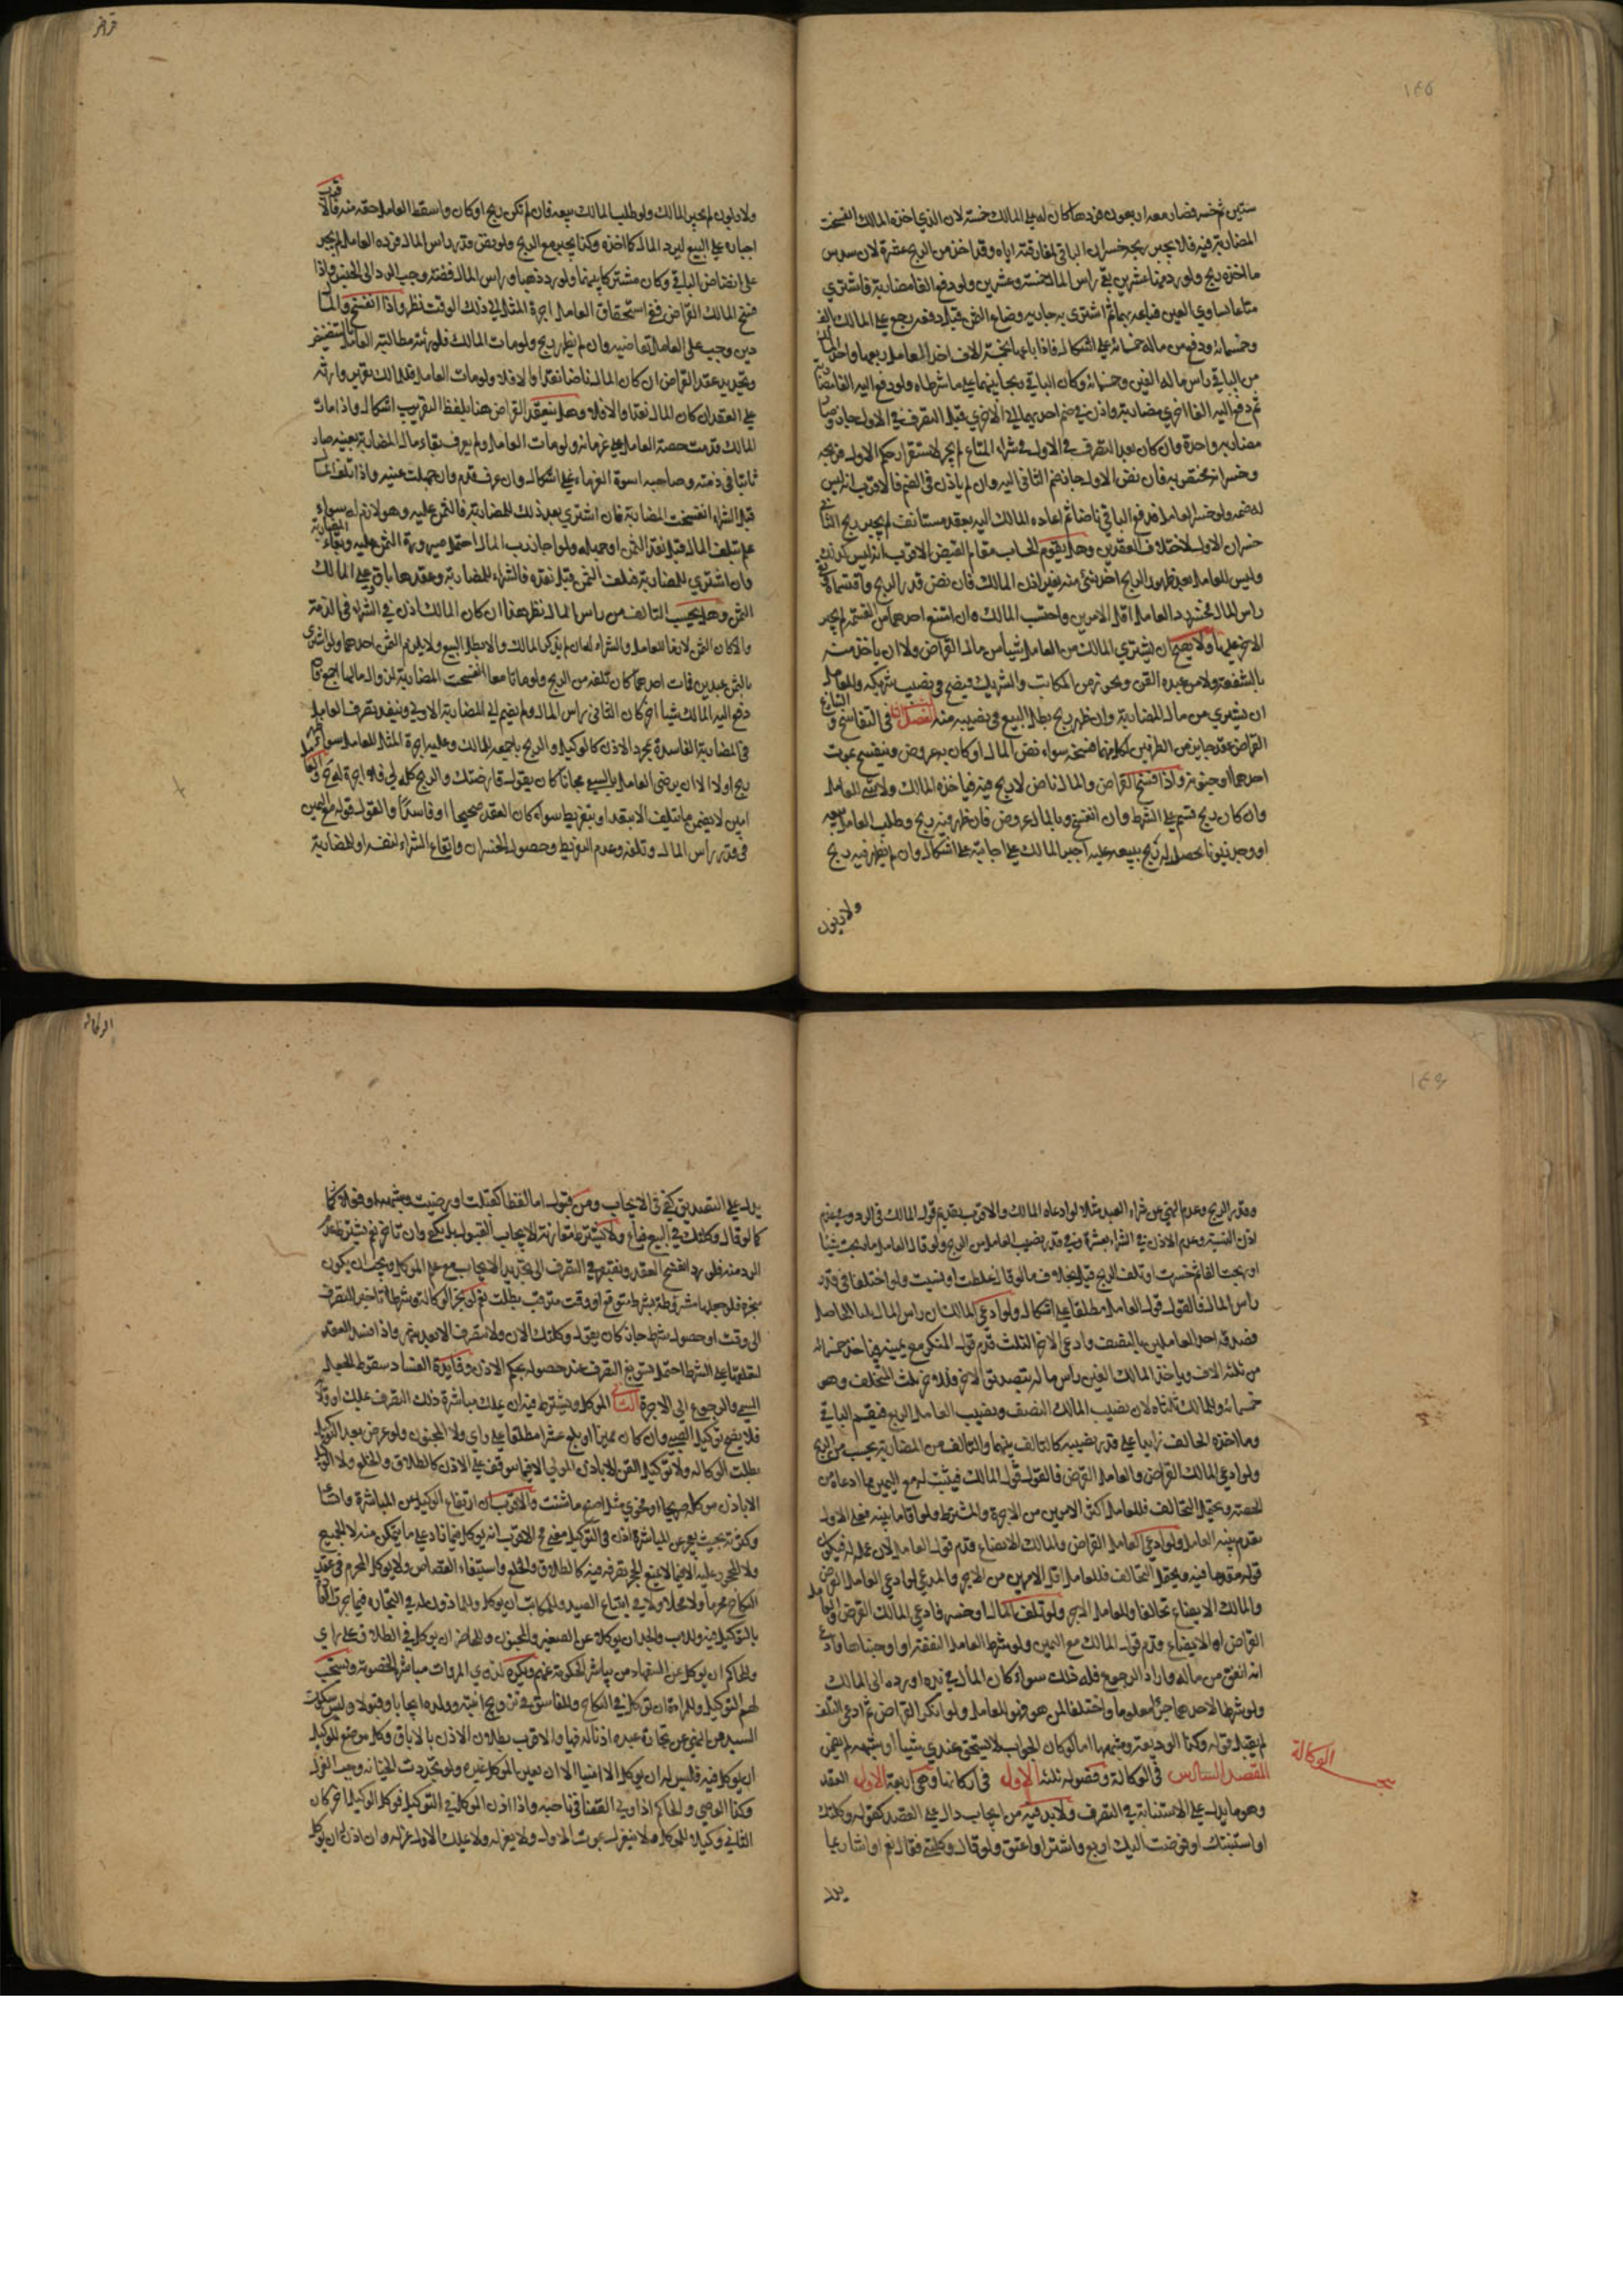 ١٤٥
ستين ثم خسر فصار معه اربعون فردها كان له على المالك خمسة لان الذي اخذه المالك انفسخت
المضاربة فيه فلا يجبر بربحه خسران الباقي لمفارقته اياه وقد اخذ من الربح عشرة لان سدس
ما اخذه ربح ولو رد منها عشرين بقي راس المال خمسة وعشرين ولو دفع الفا مضاربة فاشترى
متاعا يساوي الفين فباعه بهما ثم اشترى به جارية وضاع الثمن قبل دفعه رجع على المالك بالف
وخمسمائة ودفع من ماله خمسمائة على اشكال فاذا باعها بخمسة الاف اخذ العامل ربعها واخذ المالك
من الباقي راس ماله الفين وخمسمائة وكان الباقي ربحا بينهما على ما شرطاه ولو دفع اليه الفا مضاربة
ثم دفع اليه الفا اخرى مضاربة واذن في ضم احديهما الى الاخرى قبل التصرف في الاول جاز وصار
مضاربة واحدة وان كان بعد التصرف في الاول في شراء المتاع لم يجز لاستقرار حكم الاول فربحه
وخسرانه مختص به فان نض الاول جاز ضم الثاني اليه وان لم ياذن في الضم فالاقرب انه ليس
له ضمه ولو خسر العامل فدفع الباقي ناضا ثم اعاده المالك اليه بعقد مستانف لم يجبر ربح الثاني
خسران الاول لاختلاف العقدين وهل يقوم الحساب مقام القبض الاقرب انه ليس كذلك
وليس للعامل بعد ظهور الربح اخذ شئ منه بغير اذن المالك فان نض قدر الربح واقتسماه وبقي
راس المال فخسر رد العامل اقل الامرين واحتسب المالك وان امتنع احدهما من القسمة لم يجبر
الاخر عليها ولا يصح ان يشتري المالك من العامل شيئا من مال القراض ولا ان ياخذ منه
بالشفعة ولا من عبده القن ويجوز من المكاتب والشريك فيصح في نصيب شريكه وللعامل
ان يشتري من مال المضاربة وان ظهر ربح بطل البيع في نصيبه منه الفصل الثالث في التفاسخ والتنازع
القراض عقد جايز من الطرفين لكل منهما فسخه سواء نض المال او كان به عروض وينفسخ بموت
احدهما وجنونه واذا فسخ القراض والمال ناض لا ربح فيه فياخذه المالك ولا شئ للعامل
وان كان ربح قسم على الشرط وان انفسخ وبالمال عروض فان ظهر فيه ربح وطلب العامل بيعه
او وجد زبونا يحصل له ربح ببيعه عليه اجبر المالك على اجابته على اشكال وان لم يظهر فيه ربح
ولا زبون
ولا زبون لم يجبر المالك ولو طلب المالك بيعه فان لم يكن ربح او كان واسقط العامل حقه منه فالاقرب
اجباره على البيع ليرد المال كما اخذه وكذا يجبر مع الربح ولو نض قدر راس المال فرده العامل لم يجبر
على انضاض الباقي وكان مشتركا بينهما ولو رد ذهبا وراس المال فضة وجب الرد الى الجنس واذا
فسخ المالك القراض ففي استحقاق العامل اجرة المثل الى ذلك الوقت نظر واذا انفسخ والمال
دين وجب على العامل تقاضيه وان لم يظهر ربح ولو مات المالك فلورثته مطالبة العامل بالتنضيض
وتجديد عقد القراض ان كان المال ناضا نقدا والا فلا ولو مات العامل فللمالك تقرير وارثه
على العقد ان كان المال نقدا والا فلا وهل ينعقد القراض هنا بلفظ التقرير اشكال واذا مات
المالك قدمت حصة العامل على غرمائه ولو مات العامل ولم يعرف بقاء مال المضاربة بعينه صار
ثابتا في ذمته وصاحبه اسوة الغرماء على اشكال وان عرف قدم وان جهلت عينه واذا تلف المال
قبل الشراء انفسخت المضاربة فان اشترى بعد ذلك للمضاربة فالثمن عليه وهو لازم له سواء
علم بتلف المال قبل نقد الثمن او جهله ولو اجاز رب المال احتمل صيرورة الثمن عليه وبقاء المضاربة
وان اشترى للمضاربة فتلف الثمن قبل نقده فالشراء للمضاربة وعقدها باق وعلى المالك
الثمن وهل يحسب التالف من راس المال نظر هذا ان كان المالك اذن في الشراء في الذمة
والا كان الثمن لازما للعامل والشراء له ان لم يذكر المالك والا بطل البيع ولا يلزم الثمن احدهما ولو اشترى
بالثمن عبدين فمات احدهما كان تلفه من الربح ولو ماتا معا انفسخت المضاربة لزوال مالها اجمع فاذا
دفع اليه المالك شيئا اخر كان الثاني راس المال ولم يضم الى المضاربة الاولى وينفذ تصرف العامل
في المضاربة الفاسدة بمجرد الاذن كالوكيل والربح باجمعه للمالك وعليه اجرة المثل للعامل سواء ظهر
ربح اولا الا ان يرضى العامل بالسعي مجانا كان يقول قارضتك والربح كله لي فلا اجرة له ح والعامل
امين لا يضمن ما يتلف الا بتعد او بتفريط سواء كان العقد صحيحا او فاسدا والقول قوله مع اليمين
في قدر راس المال وتلفه وعدم التفريط وحصول الخسران وايقاع الشراء لنفسه او للمضاربة
١٤٦
وقدر الربح وعدم النهي عن شراء العبد مثلا لو ادعاه المالك والاقرب تقديم قول المالك في الرد وفي عدم
اذن النسية وعدم الاذن في الشراء بعشرة وفي قدر نصيب العامل من الربح ولو قال العامل ما ربحت شيئا
او ربحت الفا ثم خسرت او تلف الربح قبل بخلاف ما لو قال غلطت او نسيت ولو اختلفا في قدر
راس المال فالقول قول العامل مطلقا على اشكال ولو ادعى المالك ان راس المال ثلثا الحاصل
فصدقه احد العاملين بالنصف وادعى الاخر الثلث قدم قول المنكر مع يمينه فياخذ خمسمائة
من ثلثه الاف وياخذ المالك الفين راس ماله بتصديق الاخر فللاخر ثلث المتخلف وهو
خمسمائة وللمالك ثلثاه لان نصيب المالك النصف ونصيب العامل الربع فيقسم الباقي
وما اخذه الحالف زايدا على قدر نصيبه كالتالف بينهما والتالف من المضاربة يحسب من الربح
ولو ادعى المالك القراض والعامل القرض فالقول قول المالك فيثبت له مع اليمين ما ادعاه من
الحصة ويحتمل التحالف فللعامل اكثر الامرين من الاجرة والمشترط ولو اقاما بينة فعلى الاول
تقدم بينة العامل ولو ادعى العامل القراض والمالك الابضاع قدم قول العامل لان عمله له فيكون
قوله مقدما فيه ويحتمل التحالف فللعامل اقل الامرين من الاجر والمدعى لو ادعى العامل القرض
والمالك الابضاع تحالفا وللعامل الاجر ولو تلف المال او خسر فادعى المالك القرض والعامل
القراض او الابضاع قدم قول المالك مع اليمين ولو شرط العامل النفقة او اوجبناها وادعى
انه انفق من ماله واراد الرجوع فله ذلك سواء كان المال في يده او رده الى المالك
ولو شرطا لاحدهما جزءا معلوما واختلفا لمن هو فهو للعامل ولو انكر القراض ثم ادعى التلف
لم يقبل قوله وكذا الوديعة وشبهها اما لو كان الجواب لا يستحق عندي شيئا او شبهه لم يضمن
الوكالة
المقصد السادس في الوكالة وفصوله ثلثه الاول في اركانها وهي اربعة الاول العقد
وهو ما يدل على الاستنابة في التصرف ولا بد فيه من ايجاب دال على القصد كقوله وكلتك
او استنبتك او فوضت اليك او بع واشتر او اعتق ولو قال وكلتني فقال نعم او اشار بما
يدل
يدل على التصديق كفى في الايجاب ومن قبول اما لفظا كقبلت او رضيت وشبهه او فعلا كما
كما لو قال وكلتك في البيع فباع ولا يشترط مقارنة الايجاب القبول بل يكفي وان تاخر نعم يشترط عدم
الرد منه فلو رد انفسخ العقد ويفتقر في التصرف الى تجديد الايجاب مع علم الموكل ويجب ان يكون
منجزة فلو جعلها مشروطة بشرط متوقع او وقت مترقب بطلت نعم لو نجز الوكالة وشرط تاخير التصرف
الى وقت او حصول شرط جاز كان يقول وكلتك الان ولا تتصرف الا بعد شهر واذا فسد العقد
لتعليقها على الشرط احتمل تسويغ التصرف عند حصوله بحكم الاذن وفايدة الفساد سقوط الجعل
المسمى والرجوع الى الاجرة الثاني الموكل ويشترط فيه ان يملك مباشرة ذلك التصرف بملك او ولاية
فلا يصح توكيل الصبي وان كان مميزا او بلغ عشرا مطلقا على راي ولا المجنون ولو عرض بعد التوكيل
بطلت الوكالة ولا توكيل القن الا باذن المولى الا فيما يتوقف على الاذن كالطلاق والخلع ولا الوكيل
الا باذن موكله صريحا او فحوى مثل اصنع ما شئت والاقرب ان ارتفاع الوكيل من المباشرة واتساع
وكثرته بحيث يعجز عن المباشرة اذن في التوكيل معنى فح الاقرب انه يوكل فيما زاد على ما يتمكن منه لا الجميع
ولا المحجور عليه الا فيما لا يمنع الحجر تصرفه فيه كالطلاق والخلع واستيفاء القصاص ولا يوكل المحرم في عقد
النكاح محرما ولا محلا ولا في ابتياع الصيد وللمكاتب ان يوكل وللماذون له في التجارة فيما جرت العادة
بالتوكيل فيه وللاب والجد ان يوكلا عن الصغير والمجنون وللحاضر ان يوكل في الطلاق على راي
وللحاكم ان يوكل عن السفهاء من يباشر الحكومة عنهم ويكره لذوي المروات مباشرة الخصومة ويستحب
لهم التوكيل وللمراة ان توكل في النكاح وللفاسق في تزويج ابنته وولده ايجابا وقبولا وليس سكوت
السيد عن النهي عن تجارة عبده اذنا له فيها والاقرب بطلان الاذن بالاباق وكل موضع للوكيل
ان يوكل فيه فليس له ان يوكل الا امينا الا ان يعين الموكل غيره ولو تجددت الخيانة وجب العزل
وكذا الوصي والحاكم اذا ولى القضاء في ناحية واذا اذن الموكل في التوكيل فوكل الوكيل اخر كان
الثاني وكيلا للموكل فلا ينعزل بموت الاول ولا بعزله ولا يملك الاول عزله وان اذن له ان يوكل